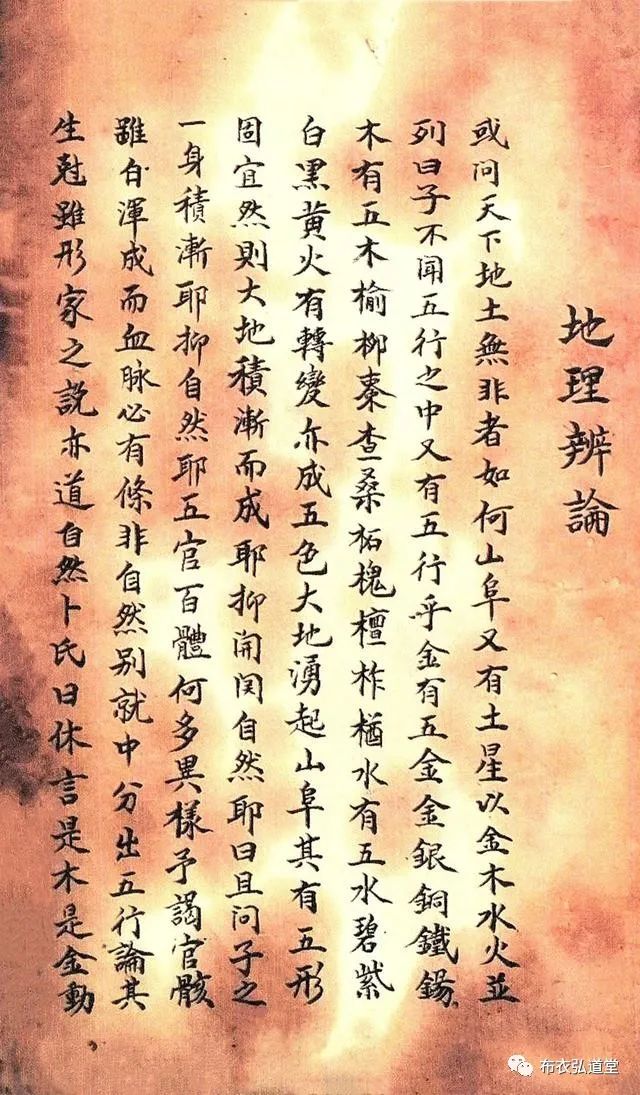 地理辨論
或問天下地土無非者如何山阜又有土星以金木水火並
列曰子不聞五行之中又有五行乎金有五金金銀銅鐵錫
木有五木榆柳棗查桑柘槐檀柞楢水有五水碧紫
白黑黃火有轉變亦成五色大地湧起山阜其有五形
固宜然則大地積漸而成耶抑開闵自然耶曰且問子之
一身積漸耶抑自然耶五官百體何多異樣予謁官骸
雖自渾成而血脉必有條非自然別就中分出五行論其
生尅雖形家之說亦道自然卜氏曰休言是木是金動
布衣弘道堂